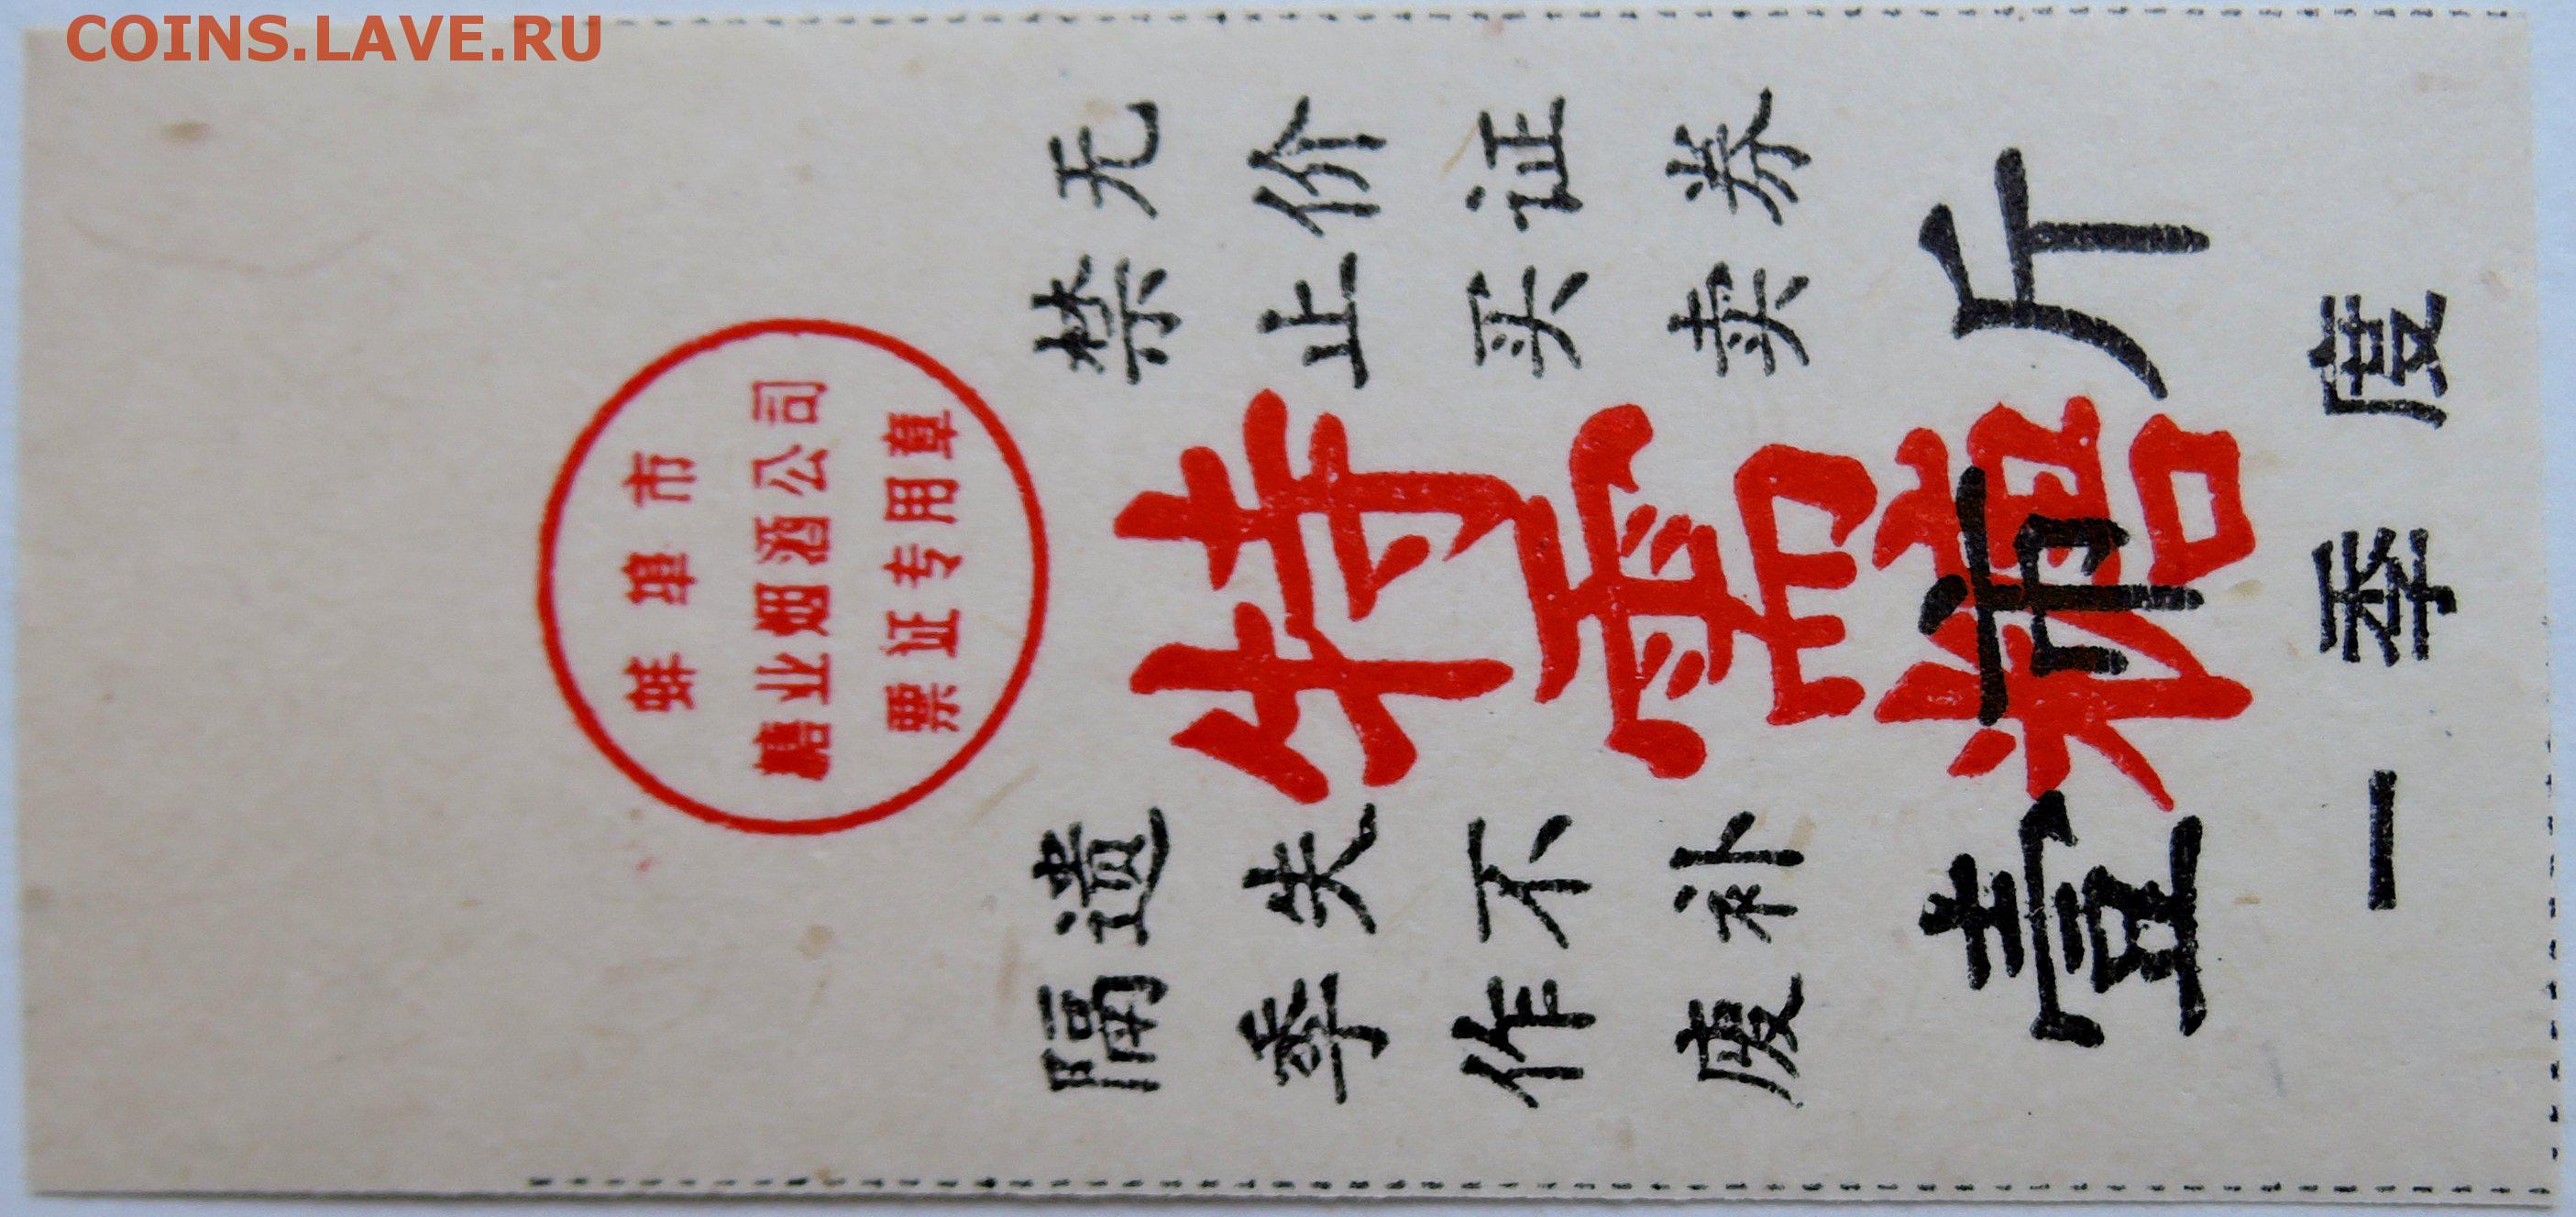 COINS.LAVE.RU
蚌埠市
糖业烟酒公司
票证专用章
无价证券
禁止买卖
特需糖
遗失不补
隔季作废
壹市斤
一季度